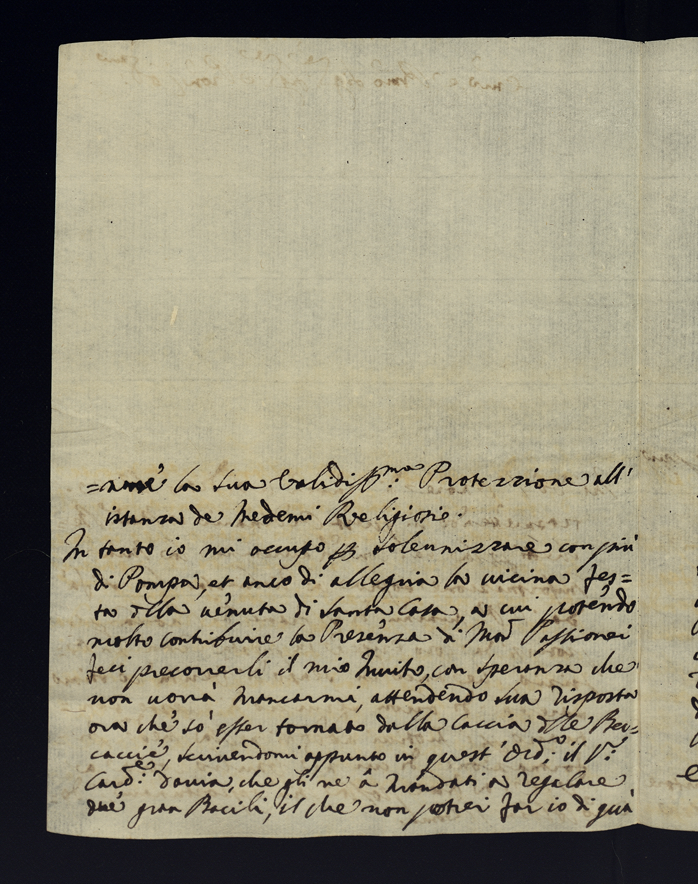 =amè la sua Validiss.ma Protezzione all'
istanza de Medemi Religiosi.
In tanto io mi occupo p solennizzare con più
di Pompa, et anco di allegria la vicina fes=
ta della venuta di Santa Casa, a cui potendo
molto contribuire la Presenza di Mod Passionei
feci precorrerli il mio Invito, con speranza che
non vorrà mancarmi, attendendo sua risposta
ora che sò esser tornato dalla Caccia delle Bec=
caccie, scrivendomi appunto in quest' Ord. il S.r
Card.e Davia, che gli ne à mandati a regalare
due gran Bacili, il che non potrei far io di quà